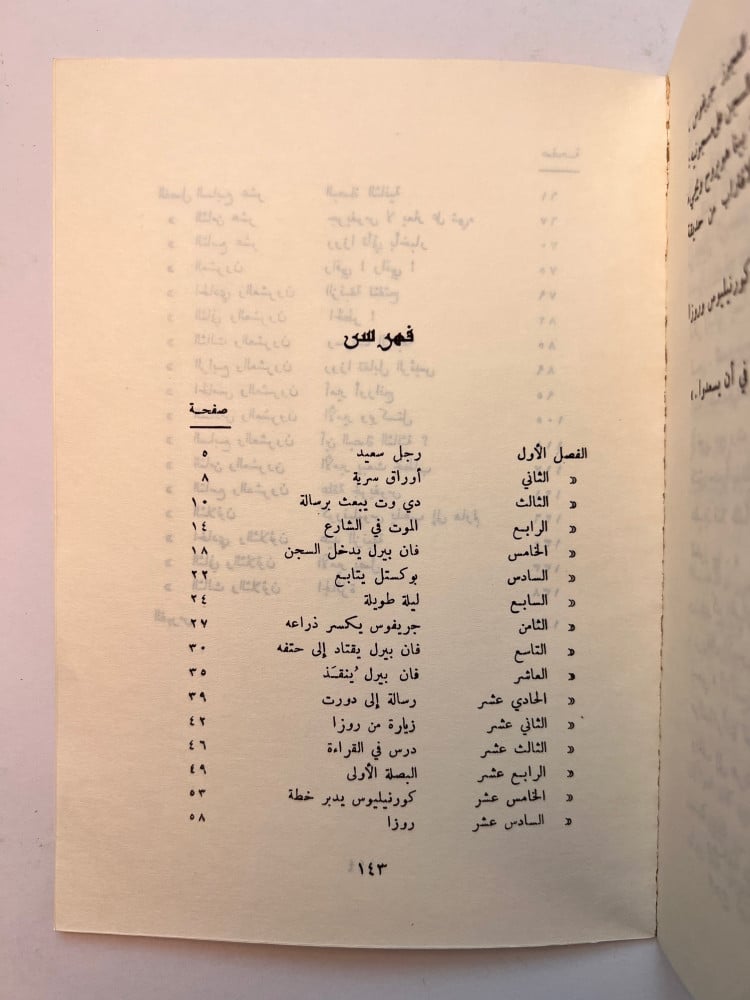 فهرس
صفحة
الفصل الأول رجل سعيد ٥
« الثاني أوراق سرية ٨
« الثالث دي وت يبعث برسالة ١٠
« الرابع الموت في الشارع ١٤
« الخامس فان بيرل يدخل السجن ١٨
« السادس بوكستل يتابع ٢٢
« السابع ليلة طويلة ٢٤
« الثامن جريفوس يكسر ذراعه ٢٧
« التاسع فان بيرل يقتاد إلى حتفه ٣٠
« العاشر فان بيرل يُنقَذ ٣٥
« الحادي عشر رسالة إلى دورت ٣٩
« الثاني عشر زيارة من روزا ٤٢
« الثالث عشر درس في القراءة ٤٦
« الرابع عشر البصلة الأولى ٤٩
« الخامس عشر كورنيليوس يدبر خطة ٥٣
« السادس عشر روزا ٥٨
١٤٣
كورنيليوس وروزا
في أن يسعدا.»